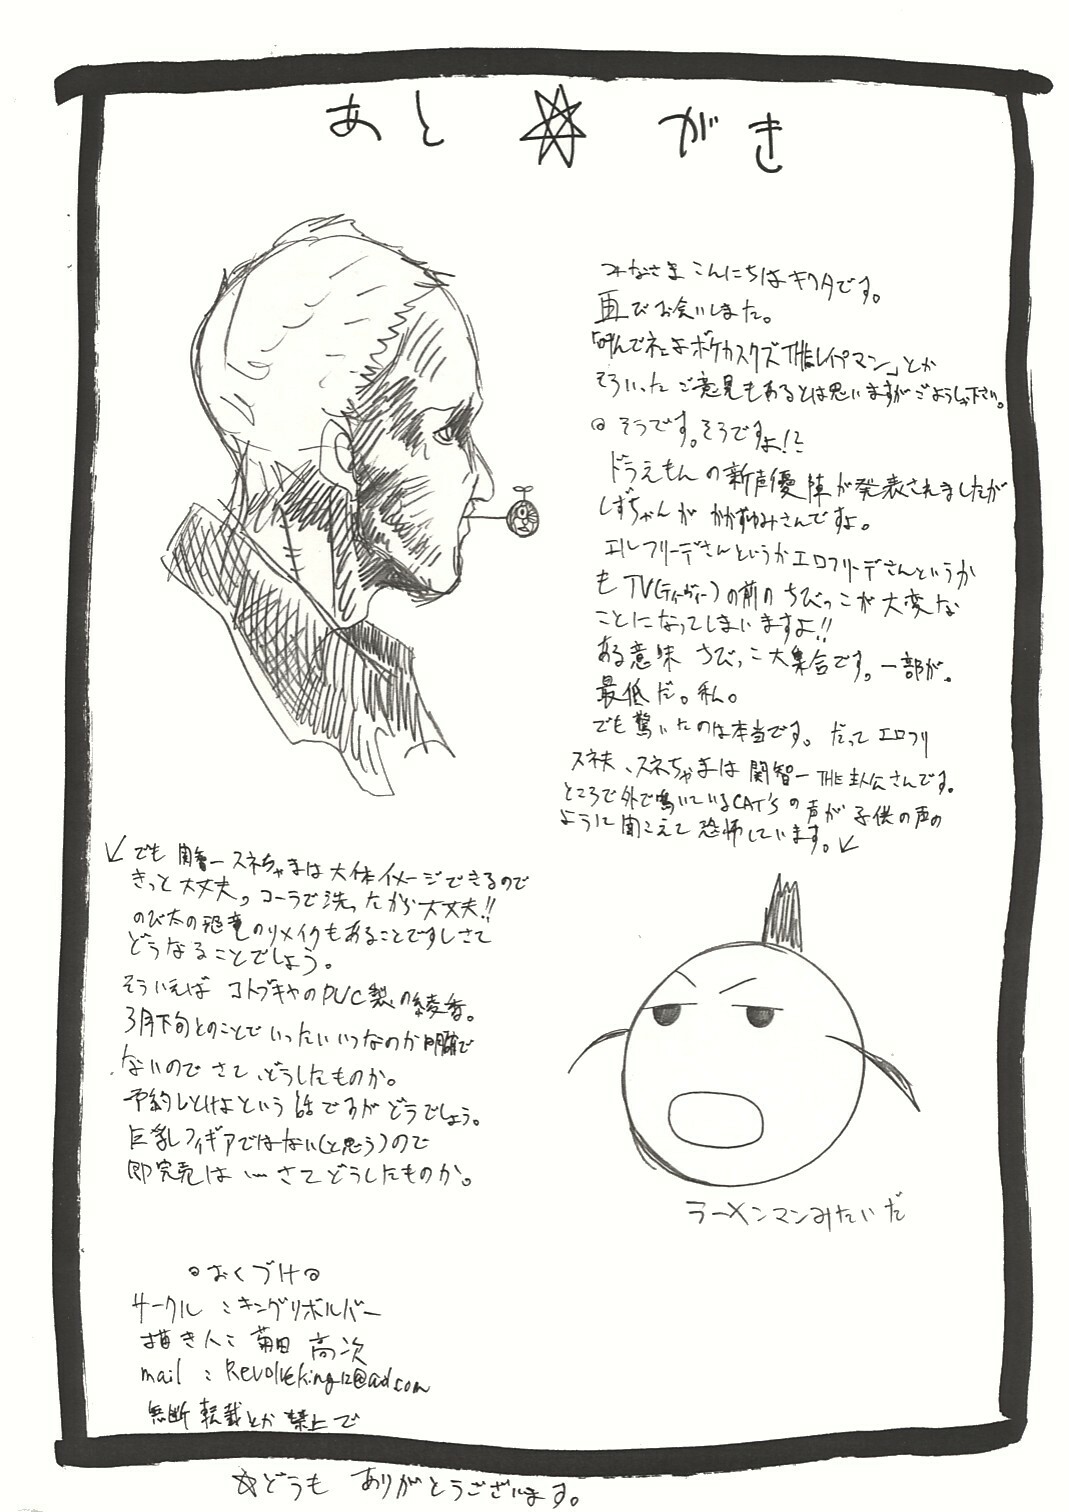 あと☆がき
みなさまこんにちはキクタです。
再びお会いしました。
「死んでネェよボケカスクズTHEレイプマン」とか
そういったご意見もあるとは思いますがごようしゃ下さい。
◎そうです。そうですよ!?
ドラえもんの新声優陣が発表されましたが
しずちゃんがかかずゆみさんですよ。
エルフリーデさんというかエロフリーデさんというか
もTV(ティーヴィー)の前のちびっこが大変な
ことになってしまいますよ!!
ある意味ちびっこ大集合です。一部が。
最低だ。私。
でも驚いたのは本当です。だってエロフリ
スネ夫、スネちゃまは関智一THE主人公さんです。
ところで外で鳴いているCAT'sの声が子供の声の
ように聞こえて恐怖しています。↙
↙でも関智一スネちゃまは大体イメージできるので
きっと大丈夫。コーラで洗ったから大丈夫!!
のび太の恐竜のリメイクもあることですしさて
どうなることでしょう。
そういえばコトブキヤのPVC製の綾香。
3月下旬とのことでいったいいつなのか明確で
ないのでさて、どうしたものか。
予約しとけよという話ですがどうでしょう。
巨乳フィギアではない(と思う)ので
即完売は…さてどうしたものか。
ラーメンマンみたいだ
◎おくづけ◎
サークル:キングリボルバー
描き人:菊田 高次
mail:Revolveking12@aol.com
無断転載とか禁止で
☆どうもありがとうございます。